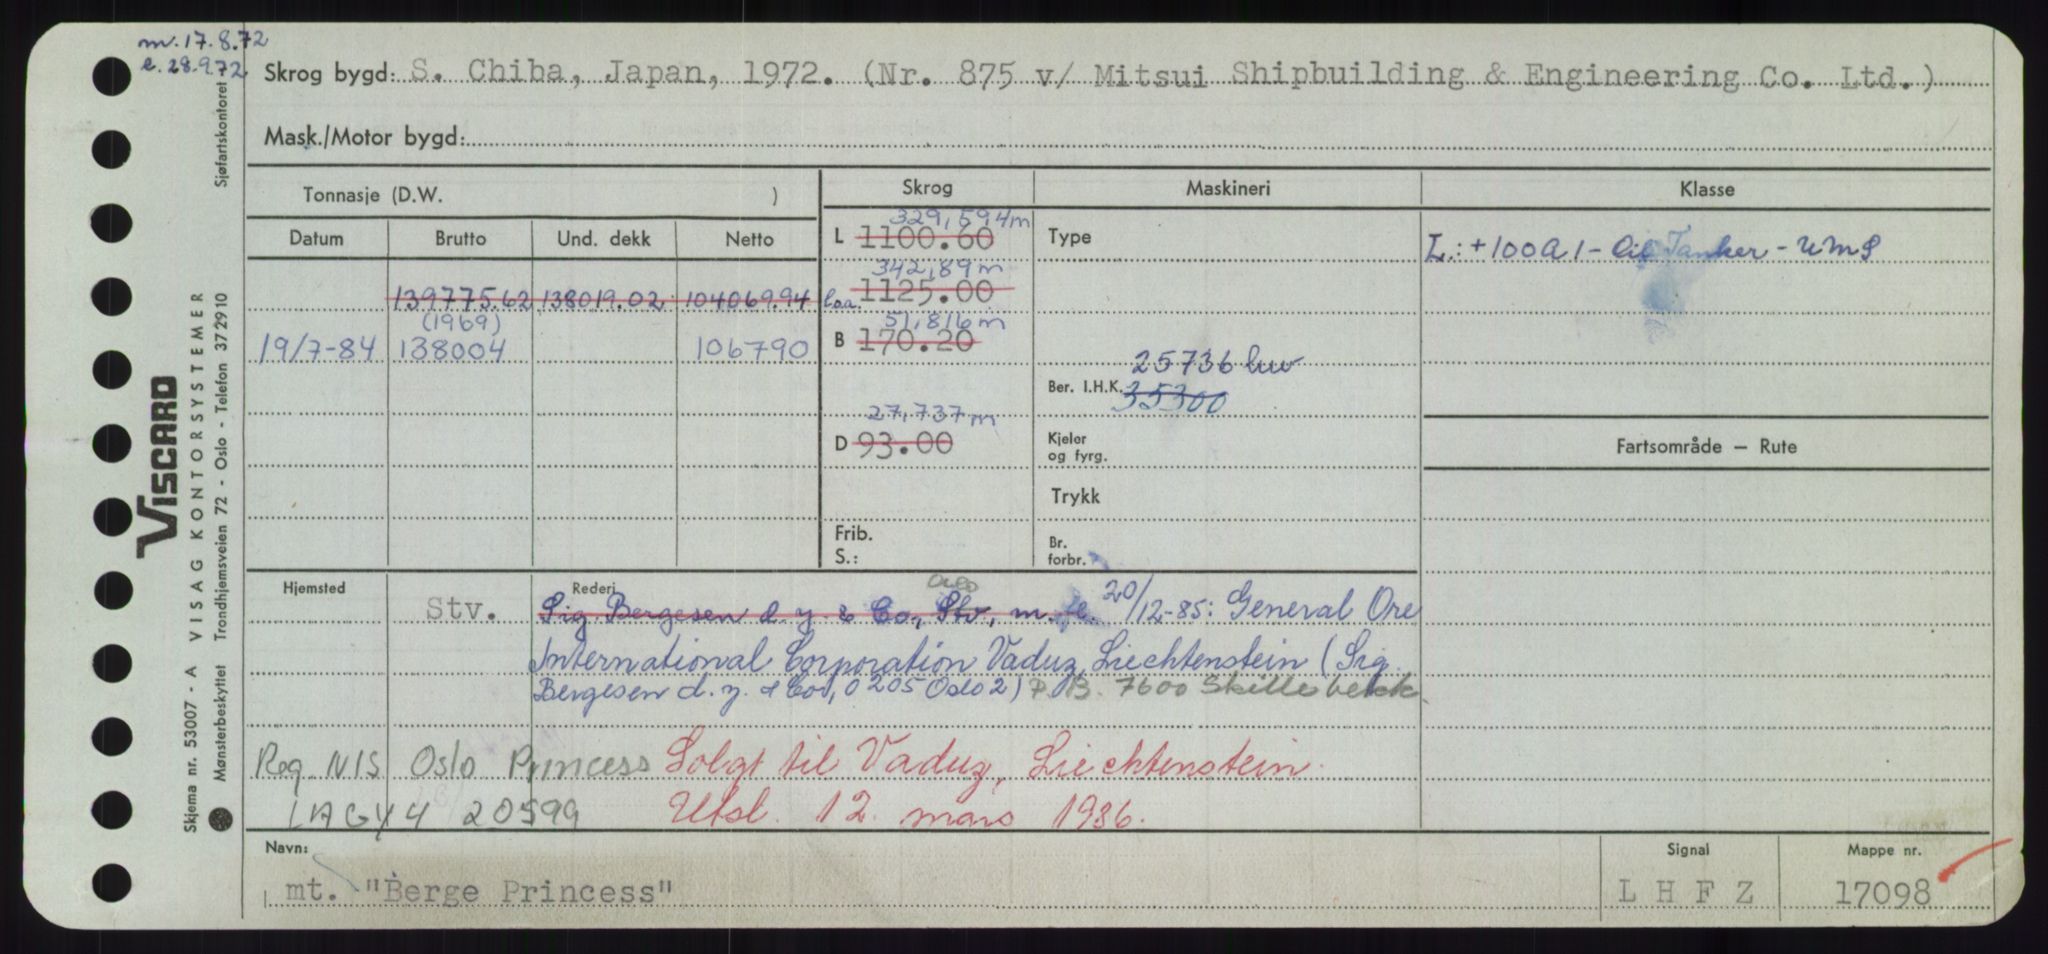 m. 17.8.72
e. 28.9.72
Skrog bygd: S. Chiba, Japan, 1972. (Nr. 875 v/ Mitsui Shipbuilding & Engineering Co. Ltd.)
Mask./Motor bygd:
Tonnasje (D.W. )
Skrog Maskineri Klasse
Datum Brutto Und. dekk Netto
329,594m
L 1100.60 Type
L: +100A1 - Oil Tanker - UMS
342,89 m
139775.62 138019.02 104069.94 loa. 1125.00
(1969) 51,816 m
19/7-84 138004 106790 B 170.20
25736 kw
Ber. I.H.K. 35300
27,737 m
D 93.00
Kjeler
og fyrg.
Fartsområde — Rute
Trykk
Frib.
S.:
Br.
forbr.
Hjemsted Rederi
Oslo
Stv. Sig. Bergesen d.y. & Co., Stv, m. fl. 20/12-85: General Ore
International Corporation Vaduz, Liechtenstein (Sig.
Bergesen d.y. & Co., 0205 Oslo 2) P.B. 7600 Skillebekk
Reg. NIS Oslo Princess Solgt til Vaduz, Liechtenstein.
LAGY4 20599 Utsl. 12. mars 1986.
Navn: Signal Mappe nr.
mt. "Berge Princess" L H F Z 17098
Sjøfartskontoret
VISCARD
VISAG KONTORSYSTEMER
Skjema nr. 53007 - A
Mønsterbeskyttet Trondhjemsveien 72 - Oslo - Telefon 37 29 10